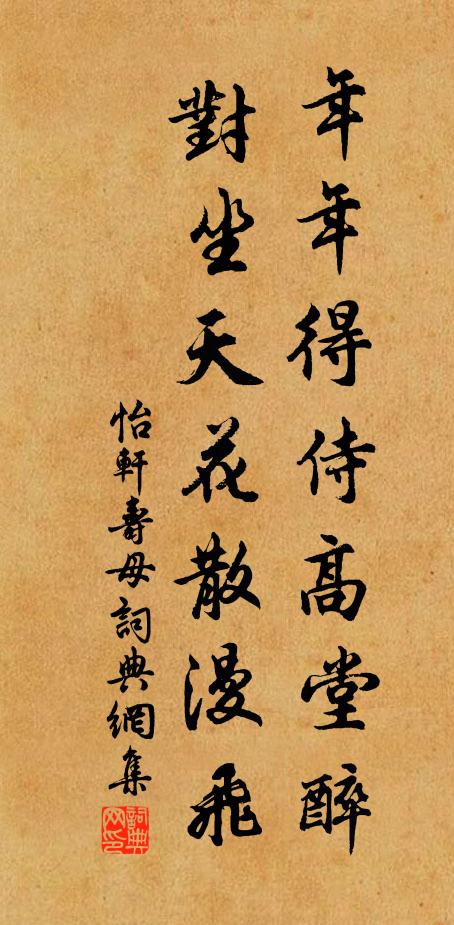 年年得侍高堂醉
對坐天花散漫飛
怡軒壽母詞典網集
詞典網印